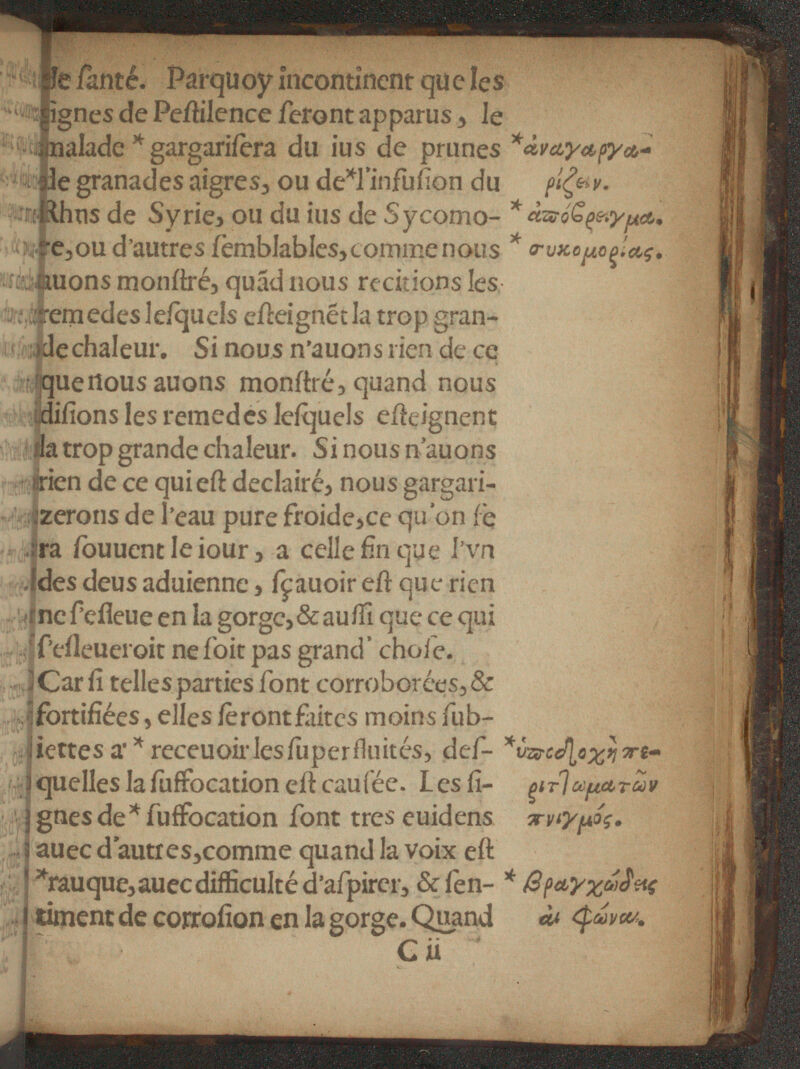 de ſanté. Parquoy incontinent que les
ſignes de Peſtilence ſeront apparus, le
malade * gargariſera du ius de prunes
*ἀναγαργα-
de granades aigres, ou de*l'infuſion du
ρίζειν.
Rhus de Syrie, ou du ius de Sycomo-
* ἀπόβρεγμα.
re, ou d'autres ſemblables, comme nous
* συκομορίας.
auons monſtré, quãd nous recitions les
remedes leſquels eſteignẽt la trop gran-
de chaleur. Si nous n'auons rien de ce
que nous auons monſtré, quand nous
diſions les remedes leſquels eſteignent
la trop grande chaleur. Si nous n'auons
rien de ce qui eſt declairé, nous gargari-
zerons de l'eau pure froide, ce qu'on fe
ra ſouuent le iour, a celle fin que l'vn
des deus aduienne, ſçauoir eſt que rien
ne ſ'eſleue en la gorge, & auſſi que ce qui
ſ'eſleueroit ne ſoit pas grand' choſe.
Car ſi telles parties ſont corroborées, &
fortifiées, elles ſeront faites moins ſub-
iettes a' * receuoir les ſuperfluités, deſ-
*ὑποδοχὴ πε-
quelles la ſuffocation eſt cauſée. Les ſi-
ριττωματῶν
gnes de * ſuffocation ſont tres euidens
πνιγμός.
auec d'autres, comme quand la voix eſt
*rauque, auec difficulté d'aſpirer, & ſen-
* βραγχώδεις
timent de corroſion en la gorge. Quand
αἱ φώναι.
G ii